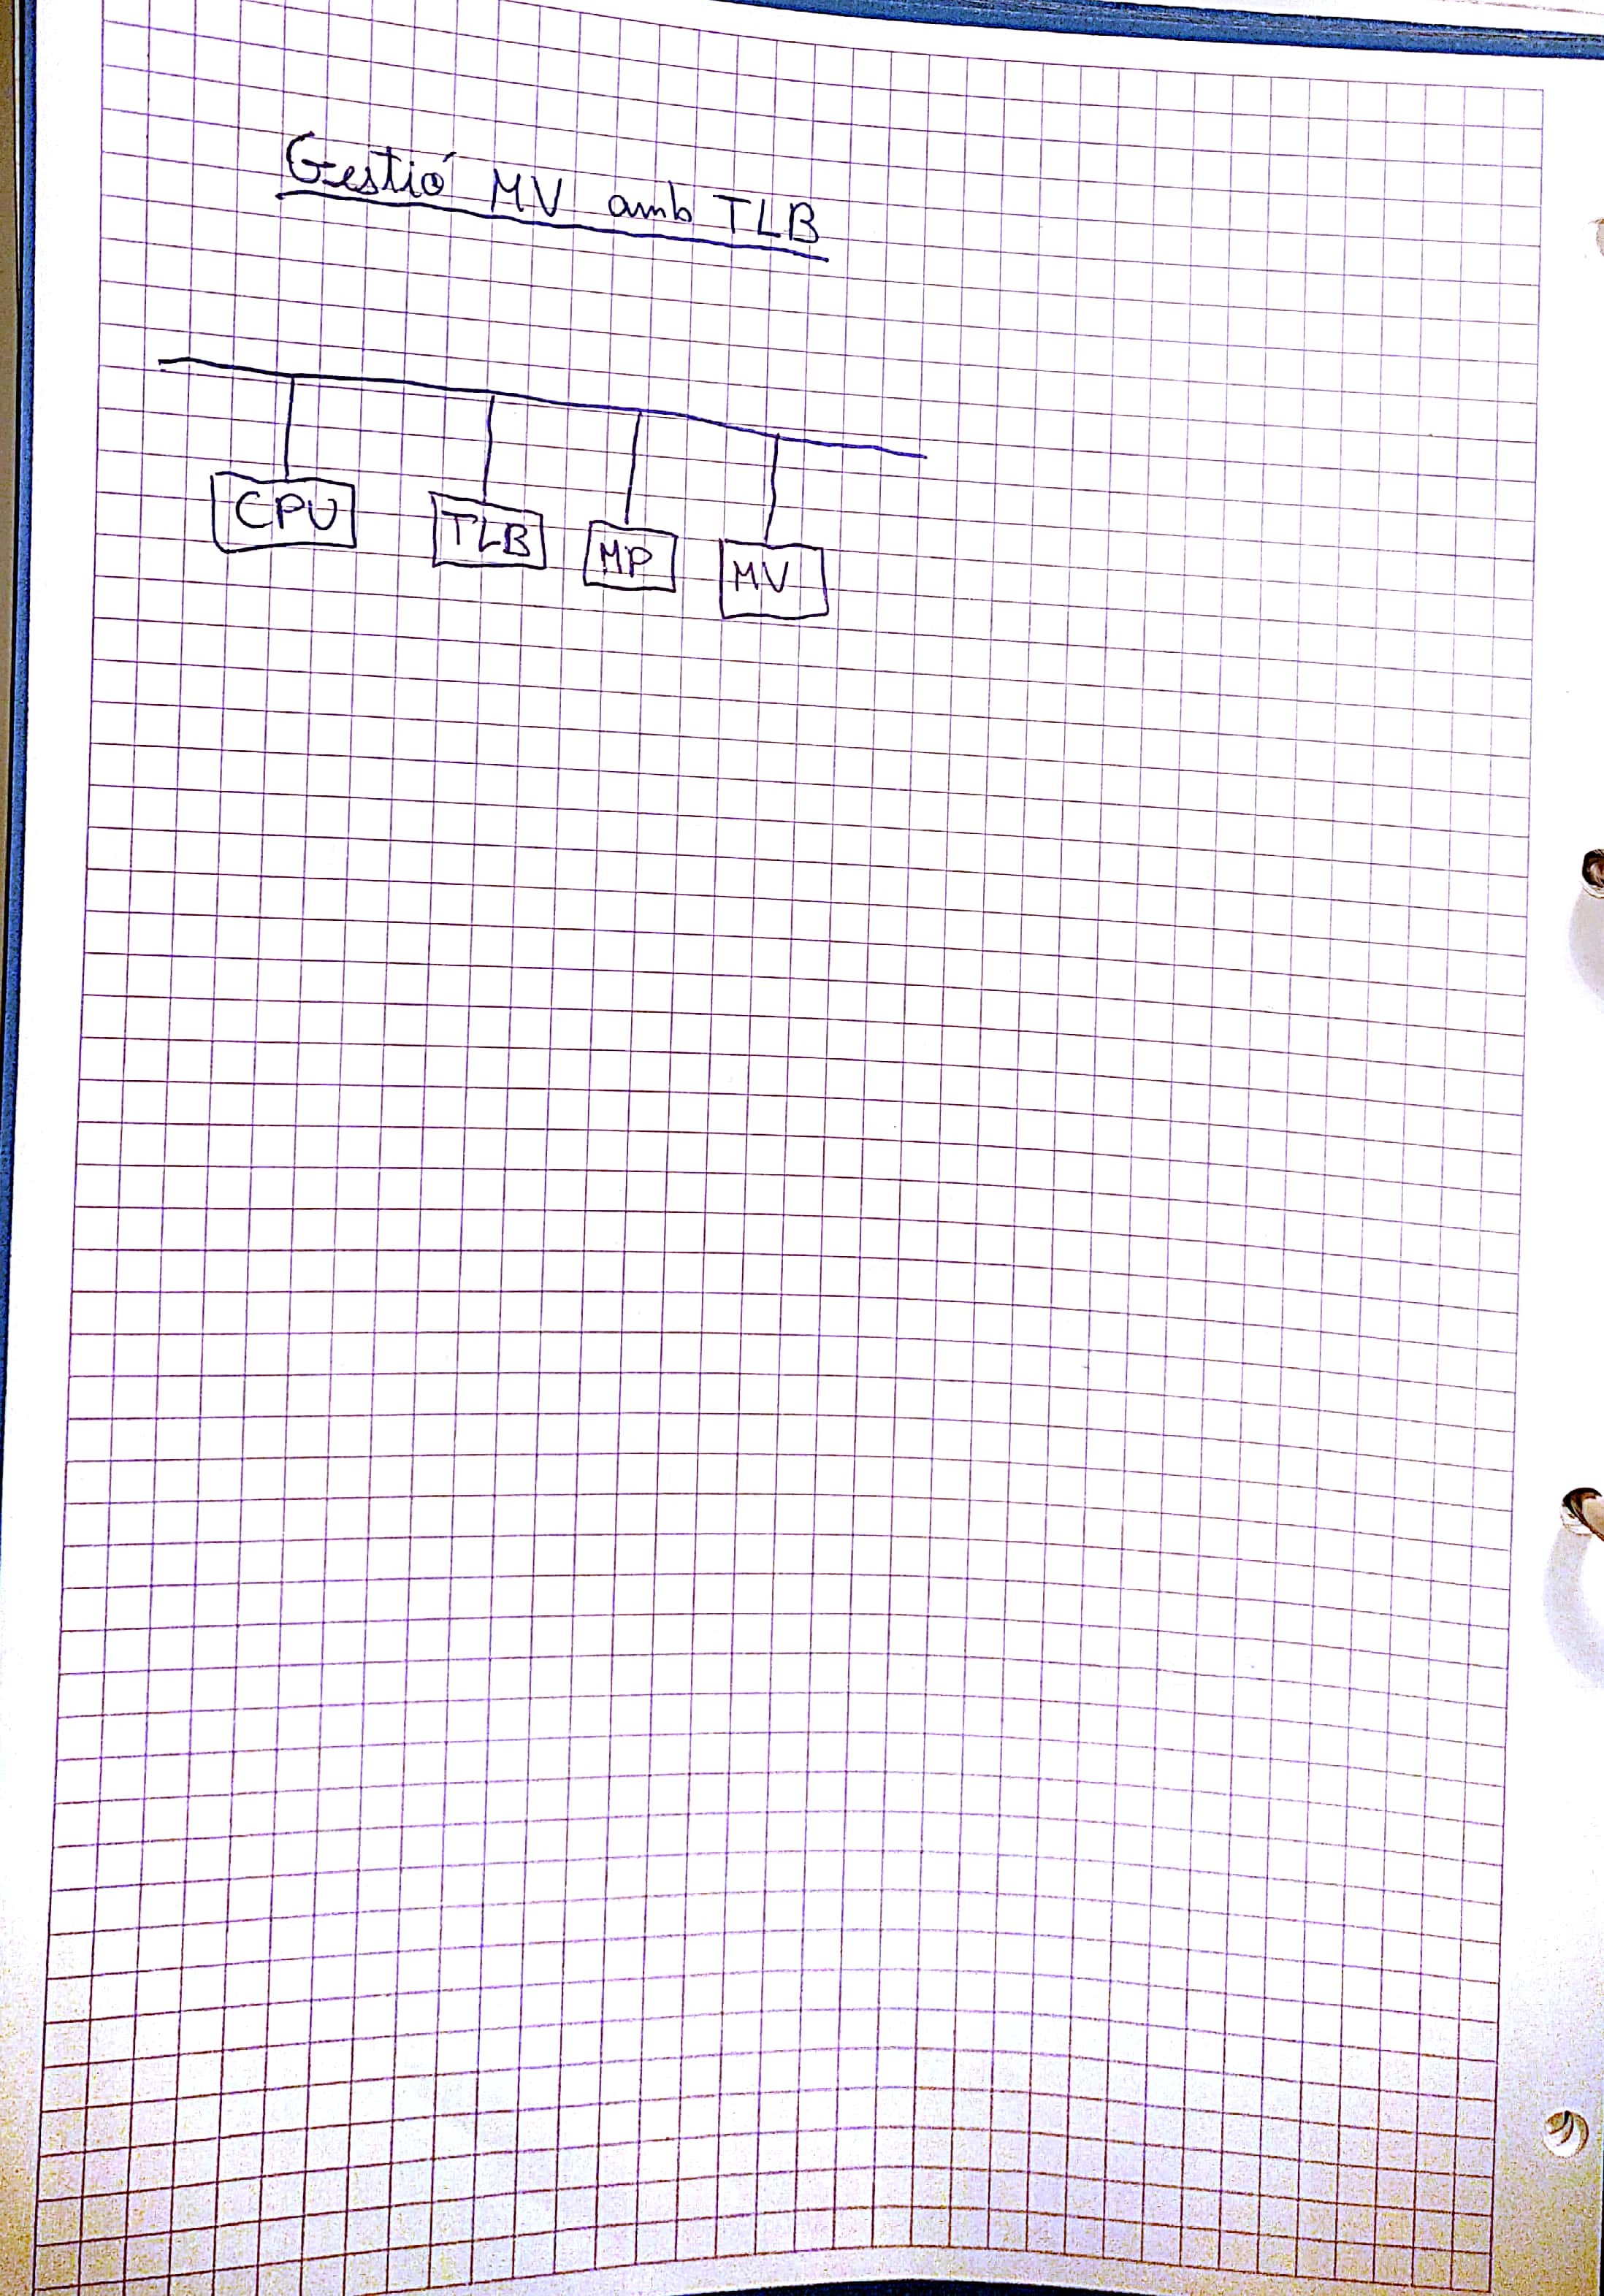 Gestió MV amb TLB
CPU TLB MP MV